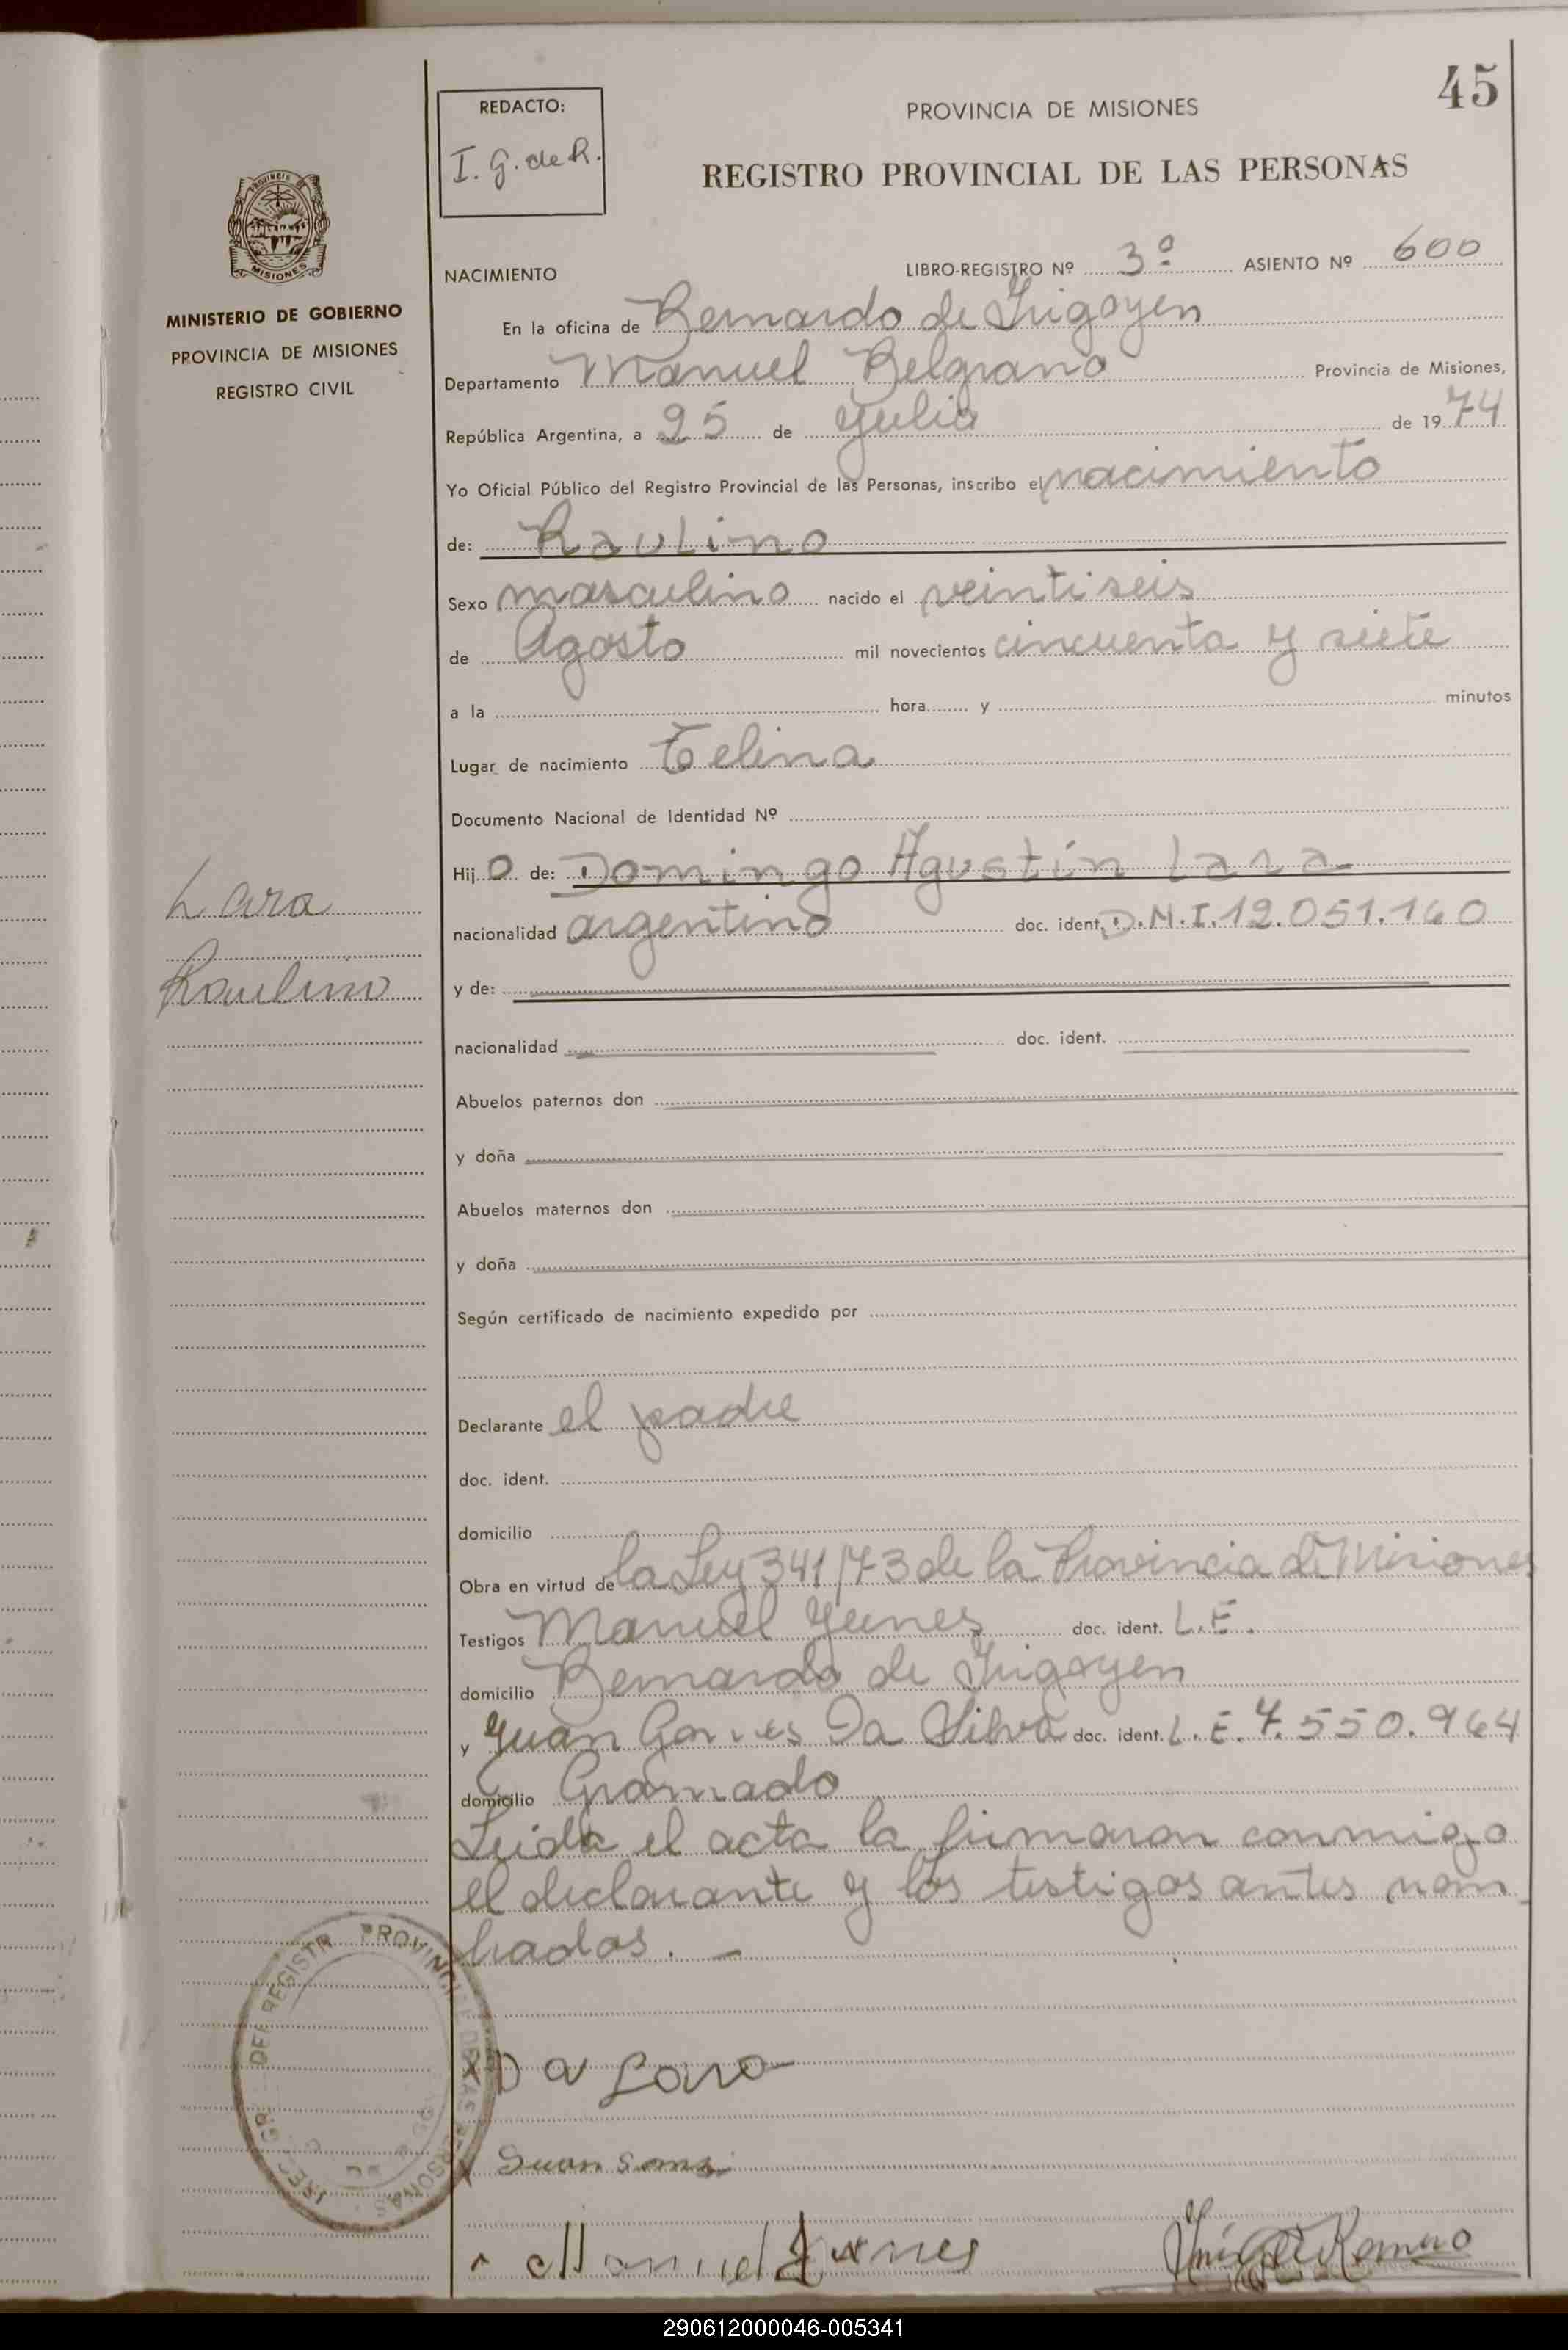 45
REDACTO:
I. G. de R.
PROVINCIA DE MISIONES
REGISTRO PROVINCIAL DE LAS PERSONAS
MISIONES
MINISTERIO DE GOBIERNO
PROVINCIA DE MISIONES
REGISTRO CIVIL
NACIMIENTO LIBRO-REGISTRO Nº 3º ASIENTO Nº 600
En la oficina de Bernardo de Irigoyen
Departamento Manuel Belgrano Provincia de Misiones,
República Argentina, a 25 de Julio de 1974
Yo Oficial Público del Registro Provincial de las Personas, inscribo el nacimiento
de: Raulino
Sexo masculino nacido el veintiseis
de Agosto mil novecientos cincuenta y siete
a la hora y minutos
Lugar de nacimiento
Documento Nacional de Identidad Nº
Hijo de: Domingo Agustín Lara
Lara
nacionalidad argentino doc. ident. D.N.I. 12.051.160
Raulino
y de:
nacionalidad doc. ident.
Abuelos paternos don
y doña
Abuelos maternos don
y doña
Según certificado de nacimiento expedido por
Declarante el padre
doc. ident.
domicilio
Obra en virtud de la Ley 341/73 de la Provincia de Misiones
Testigos Manuel Yunes doc. ident. L.E.
domicilio Bernardo de Irigoyen
y Juan Da Silva doc. ident. L.E. 7.550.964
domicilio Gramado
Leida el acta la firmaron conmigo
el declarante y los testigos antes nom
brados. -
D A Lara
Juan
Manuel Yunes
Romero
290612000046-005341